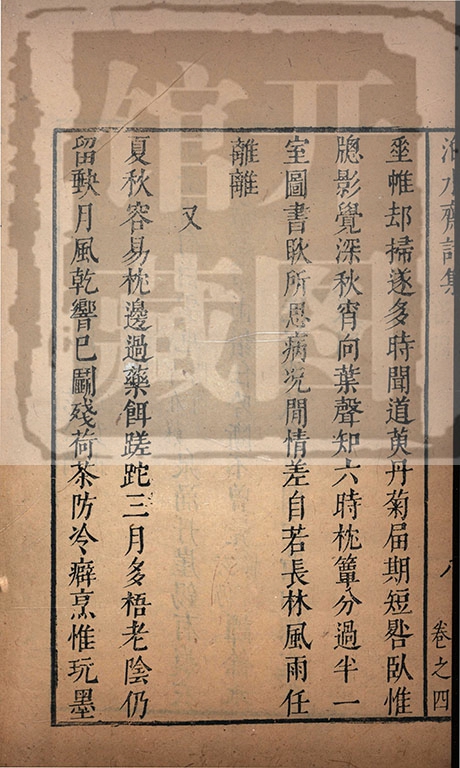 垂帷却掃遂多時聞道萸丹菊屆期短晷臥惟
牕影覺深秋宵向葉聲知六時枕簟分過半一
室圖書耿所思病況閒情差自若長林風雨任
離離
又
夏秋容易枕邊過藥餌蹉跎三月多梧老陰仍
留缺月風乾響已鬭殘荷茶防冷癖烹惟玩墨
卷之四